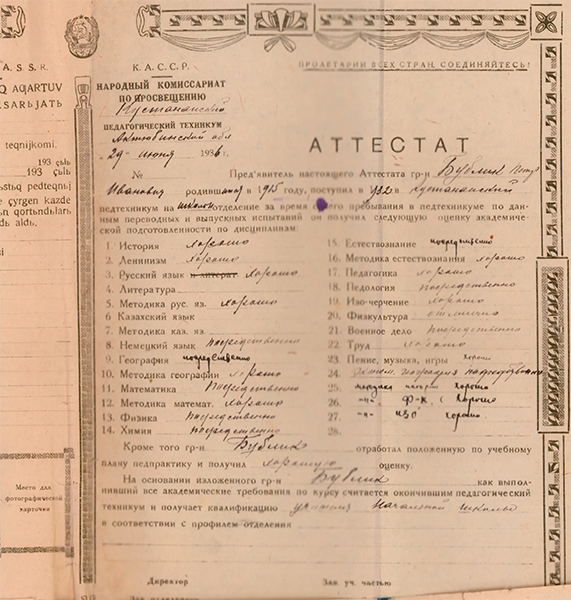 A. S. S. R.
Q AQJARTUV
SARЬJATЬ
teqnijkomi.
193 çьlь
193 çьl.
pedteqnij
çyrgen kazde
qortьndьlarь
dь aldь.
Место для
фотографической
карточки
К А. С С Р.
НАРОДНЫЙ КОМИССАРИАТ
ПО ПРОСВЕЩЕНИЮ
Кустанайский
ПЕДАГОГИЧЕСКИЙ ТЕХНИКУМ
Актюбинской обл
„29" июня 1936 г.
ПРОЛЕТАРИИ ВСЕХ СТРАН, СОЕДИНЯЙТЕСЬ!
АТТЕСТАТ
№ Пред'явитель настоящего Аттестата гр-н Бублик Петр
Иванович родившийся в 1915 году, поступил в 1932 в Кустанайский
педтехникум на школьн отделение за время своего пребывания в педтехникуме по дан-
ным переводных и выпускных испытаний он получил следующую оценку академиче-
ской подготовленности по дисциплинам:
1. История хорошо
2. Ленинизм хорошо
3. Русский язык и литерат. хорошо
4. Литература
5. Методика рус. яз. хорошо
6. Казахский язык
7. Методика каз. яз.
8. Немецкий язык посредственно
9. География посредственно
10. Методика географии хорошо
11. Математика посредственно
12. Методика математ. хорошо
13. Физика посредственно
14. Химия посредственно
15. Естествознание посредственно
16. Методика естествознания хорошо
17. Педагогика хорошо
18. Педология посредственно
19. Изо-черчение хорошо
20. Физкультура отлично
21. Военное дело посредственно
22. Труд хорошо
23. Пение, музыка, игры хорошо
24. география посредственно
25. методика истории хорошо
26. -"- Ф-К. хорошо
27. -"- ИЗО хорошо
28.
Кроме того гр-н Бублик отработал положенную по учебному
плану педпрактику и получил хорошую оценку.
На основании изложенного гр-н Бублик как выпол-
нивший все академические требования по курсу считается окончившим педагогический
техникум и получает квалификацию учителя начальной школы
в соответствии с профилем отделения
Директор Зав. уч. частью